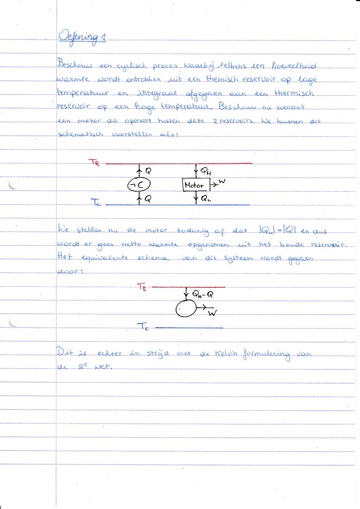 Oefening 1
Beschouw een cyclisch proces waarbij telkens een hoeveelheid
warmte wordt ontrokken uit een thermisch reservoir op lage
temperatuur en integraal afgegeven aan een thermisch
reservoir op een hoge temperatuur. Beschouw nu eveneens
een motor die opereert tussen deze 2 reservoirs. We kunnen dit
schematisch voorstellen als:
Q
¬C
Q
QH
Motor
W
TC
We stellen nu de motor zodanig af dat |Q| = |Q| en dus
wordt er geen netto warmte opgenomen uit het koude reservoir.
Het equivalente schema van dit systeem wordt gegeven
door:
W
TC
Dit is echter in strijd met de Kelvin formulering van
de 2e wet.